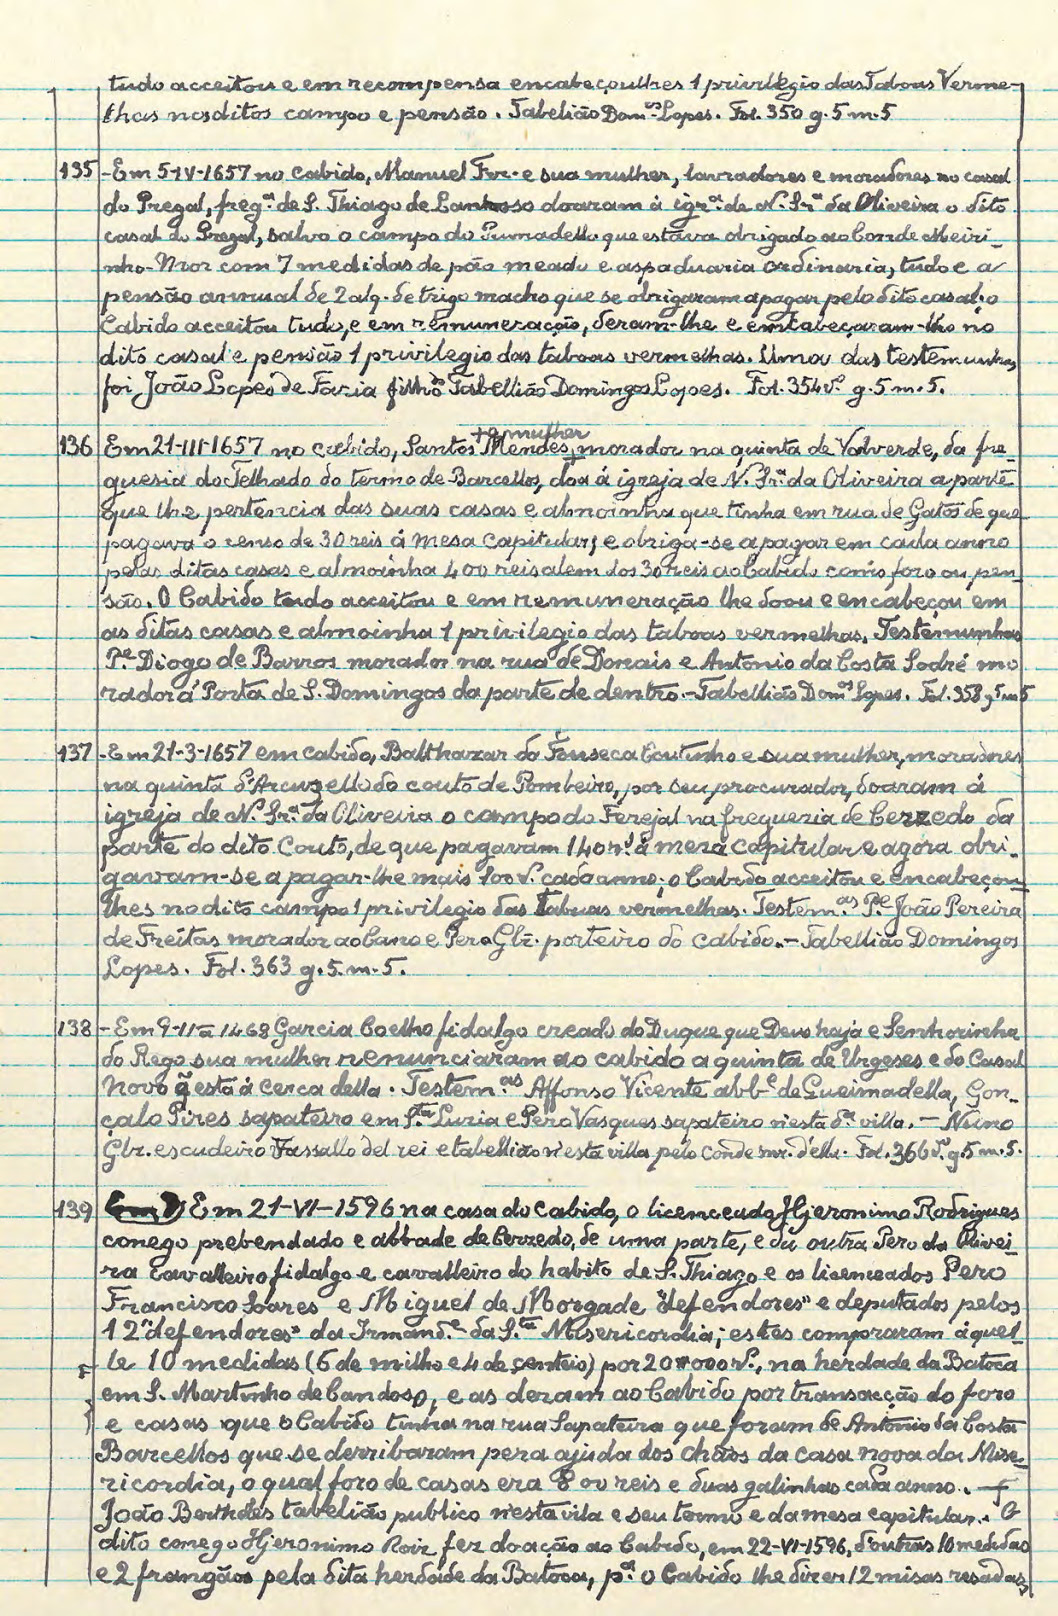 tudo acceitou e em recompensa encabeçoulhes 1 privilegio das Taboas Verme-
lhas nos ditos campo e pensão. Tabelião Dom.os Lopes. Fol. 350 g. 5 m. 5
135 - Em 5-IV-1657 no cabido, Manuel Frr.a e sua mulher, lavradores e moradores no casal
do Pregal, freg.a de S. Thiago de Candoso doaram á igr.a de N. Sr.a da Oliveira o dito
casal do Pregal, salvo o campo do Pumadello que estava obrigado ao Conde Meiri-
nho-Mor com 7 medidas de pão meado e aspaduaria ordinaria, tudo e a
pensão annual de 2 alq. de trigo macho que se obrigaram a pagar pelo dito casal; o
Cabido acceitou tudo, e em remuneração, deram-lhe e emcabeçaram-lho no
dito casal e pensão 1 privilegio das taboas vermelhas. Uma das testemunhas
foi João Lopes de Faria filho do Tabellião Domingos Lopes. Fol. 354 v.o g. 5 m. 5.
+ e mulher
136 Em 21-III-1657 no cabido, Santos Mendes, + morador na quinta de Valverde, da fre-
guesia do Telhado do termo de Barcellos, doa á igreja de N. Sr.a da Oliveira a parte
que lhe pertencia das suas casas e almoinha que tinha em rua de Gatos de que
pagava o censo de 30 reis á mesa capitular; e obriga-se a pagar em cada anno
pelas ditas casas e almoinha 400 reis alem dos 30 reis ao Cabido como foro ou pen-
são. O Cabido tudo acceitou e em remuneração lhe doou e encabeçou em
as ditas casas e almoinha 1 privilegio das taboas vermelhas. Testemunhas
P.e Diogo de Barros morador na rua de Donais e Antonio da Costa Sodré mo
rador á Porta de S. Domingos da parte de dentro.- Tabellião Dom.os Lopes. Fol. 358 g 5 m 5
137 - Em 21-3-1657 em cabido, Balthazar da Fonseca Coutinho e sua mulher, moradores
na quinta d'Arcuzello do couto de Pombeiro, por seu procurador, doaram á
igreja de N. Sr.a da Oliveira o campo do Ferejal na freguezia de Cerzedo da
parte do dito Couto, de que pagavam 140 r.s á meza capitular e agora obri-
gavam-se a pagar-lhe mais 100 r.s cada anno; o Cabido acceitou e encabeçou-
lhes no dito campo 1 privilegio das Tabuas vermelhas. Testem.as P.e João Pereira
de Freitas morador ao Cano e Pero Glz. porteiro do cabido.- Tabellião Domingos
Lopes. Fol. 363 g. 5. m. 5.
138 - Em 9-II-1468 Garcia Coelho fidalgo creado do Duque que Deus haja e Senhorinha
do Rego sua mulher renunciaram ao cabido a quinta de Urgeses e do Casal
Novo q̃ está á cerca della. Testem.as Affonso Vicente abb.e de Gueimadella, Gon-
çalo Pires sapateiro em S.ta Luzia e Pero Vasques sapateiro n'esta d.a villa. - Nuno
Glz. escudeiro Vassallo del rei e tabellião n'esta villa pelo Conde snr. d'ella. Fol. 366 v. g. 5 m. 5.
139 Em 21-VI-1596 na casa do Cabido, o licenceado Hjeronimo Rodrigues
conego prebendado e abbade de Cerzedo, de uma parte, e da outra Pero da Olivei-
ra Cavalleiro fidalgo e cavalleiro do habito de S. Thiago e os licenceados Pero
Francisco Soares e Miguel de Morgade "defendores" e deputados pelos
12 "defendores" da Irmand.e da S.ta Misericordia; estes compraram áquel-
le 10 medidas (6 de milho e 4 de centeio) por 20#000 r.s, na herdade da Batoca
em S. Martinho de Candoso, e as deram ao Cabido por transacção do foro
e casas que o Cabido tinha na rua Sapateira que foram de Antonio da Costa
Barcellos que se derribaram pera ajuda dos chãos da casa nova da Mise-
ricordia, o qual foro de casas era 800 reis e duas galinhas cada anno. -
João Bertholes tabelião publico n'esta vila e seu termo e da mesa capitular. - O
dito conego Hjeronimo Roiz fez doação ao Cabido, em 22-VI-1596, d'outras 10 medidas
e 2 frangãos pela dita herdade da Batoca, p.a o Cabido lhe dizer 12 misas resadas,